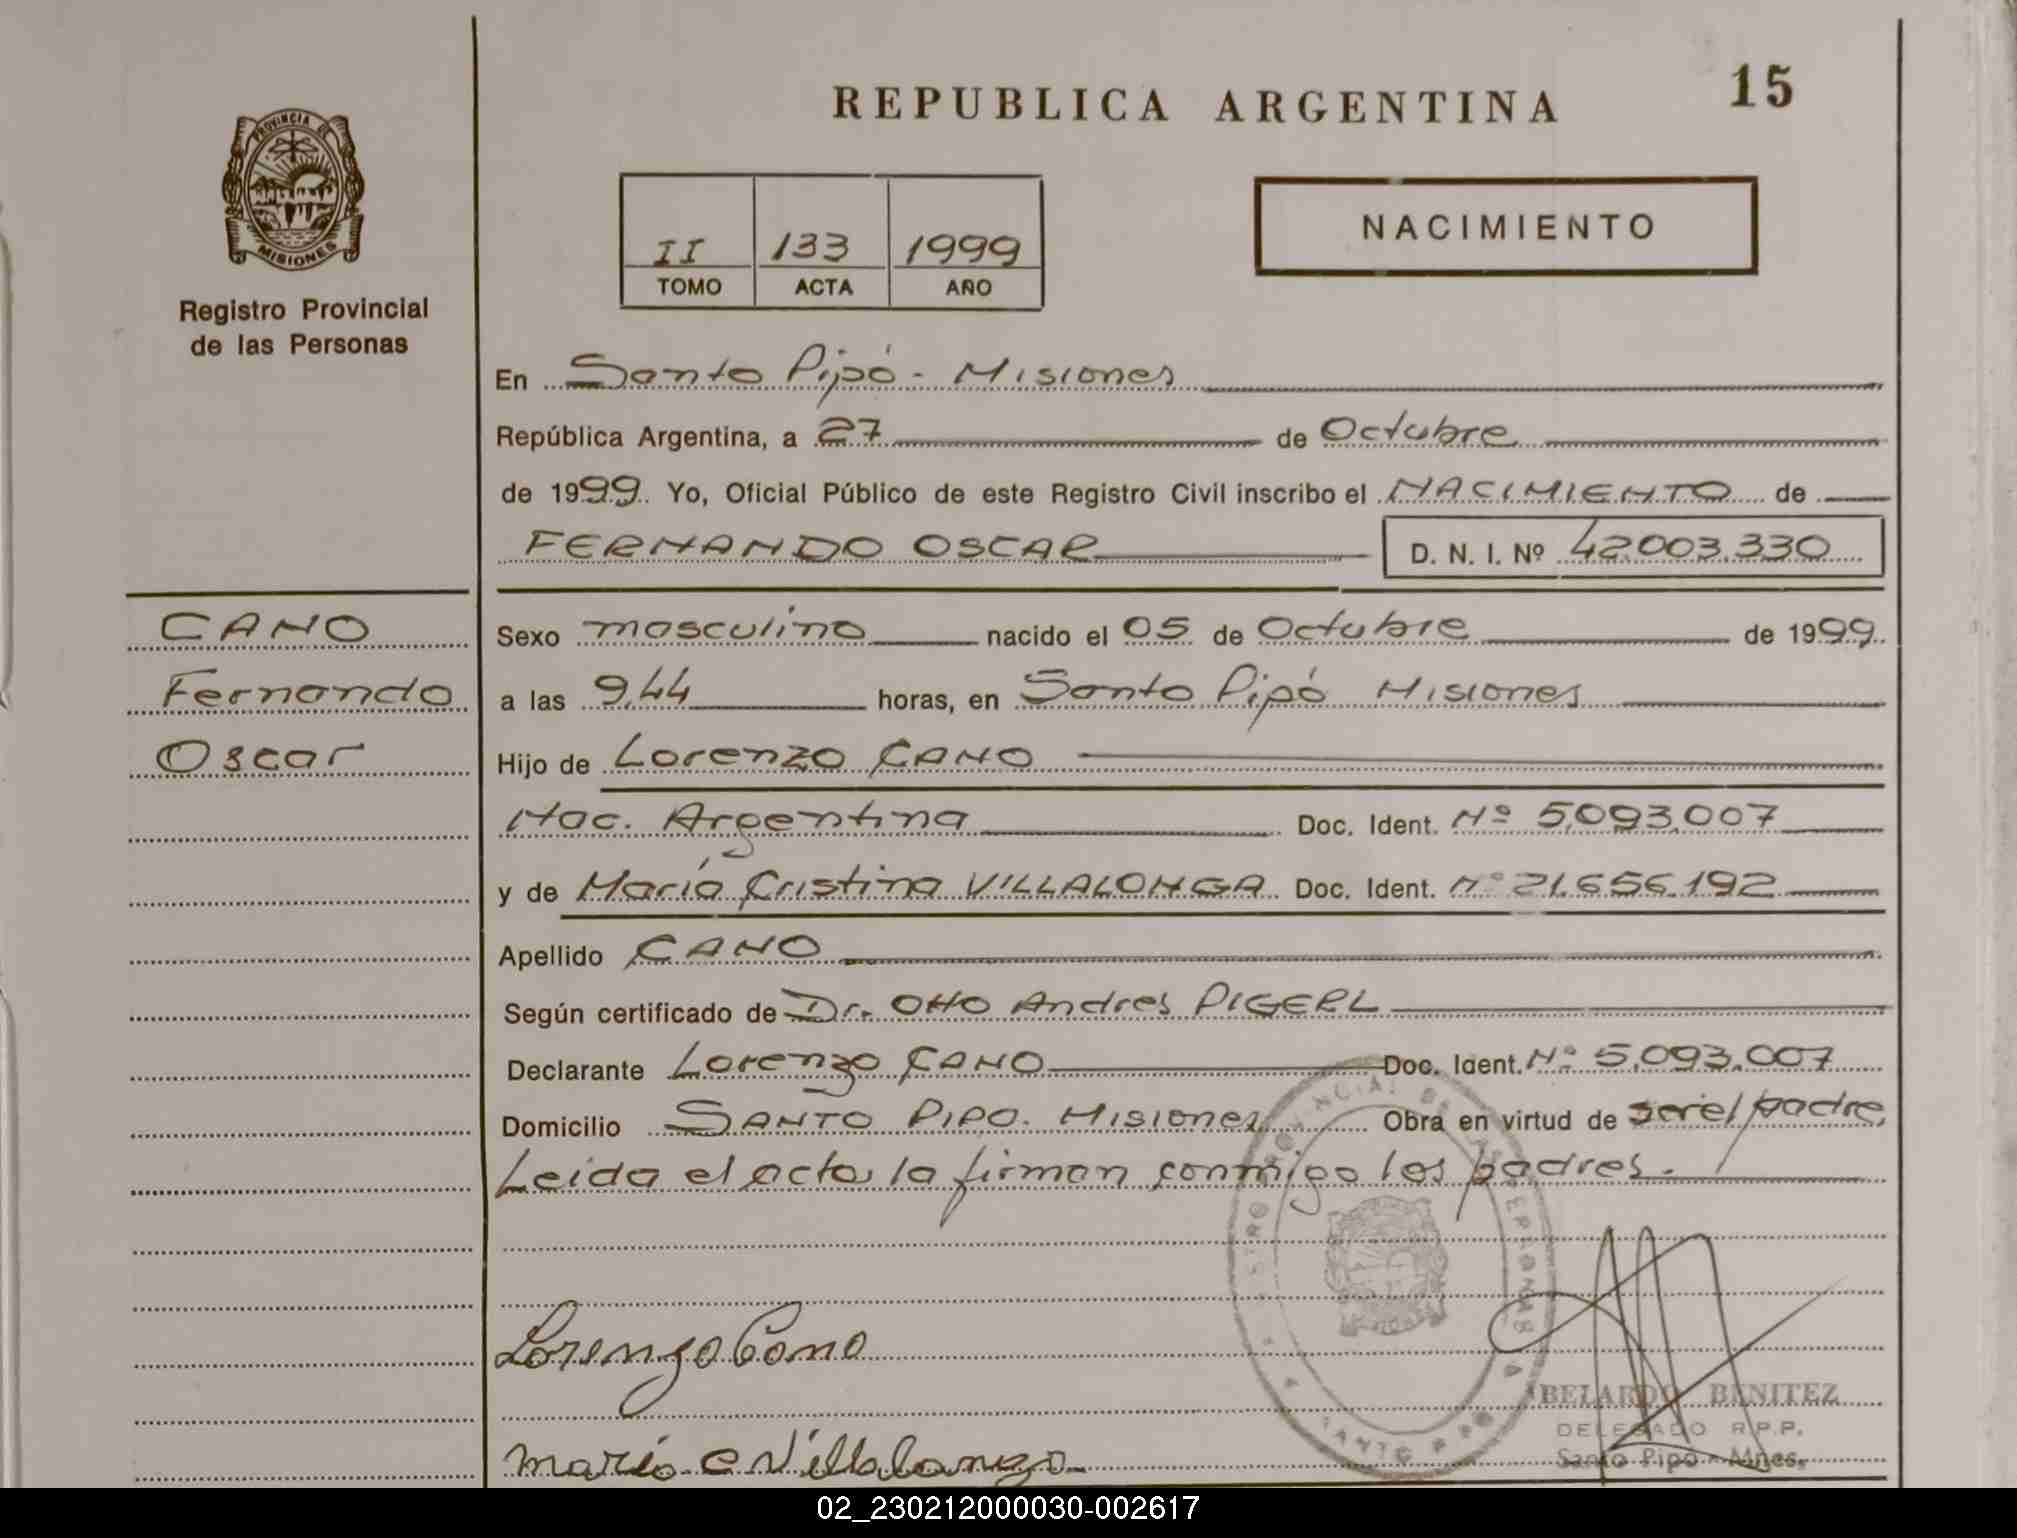 REPUBLICA ARGENTINA
15
PROVINCIA DE
MISIONES
Registro Provincial
de las Personas
II 133 1999
TOMO ACTA AÑO
NACIMIENTO
En Santo Pipó - Misiones
República Argentina, a 27 de Octubre
de 1999 Yo, Oficial Público de este Registro Civil inscribo el NACIMIENTO de
FERNANDO OSCAR D. N. I. Nº 42.003.330
CANO
Fernando
Oscar
Sexo masculino nacido el 05 de Octubre de 1999
a las 9,44 horas, en Santo Pipó Misiones
Hijo de Lorenzo CANO
Nac. Argentina Doc. Ident. Nº 5.093.007
y de María Cristina VILLALONGA Doc. Ident. Nº 21.656.192
Apellido CANO
Según certificado de Dr. Otto Andres PIGERL
Declarante Lorenzo CANO Doc. Ident. Nº 5.093.007
Domicilio SANTO PIPO. Misiones Obra en virtud de ser el padre
Leida el acta la firman conmigo los padres.
Lorenzo Cano
Maria C Villalonga
ABELARDO BENITEZ
DELEGADO R.P.P.
Santo Pipó - Mnes.
02_230212000030-002617